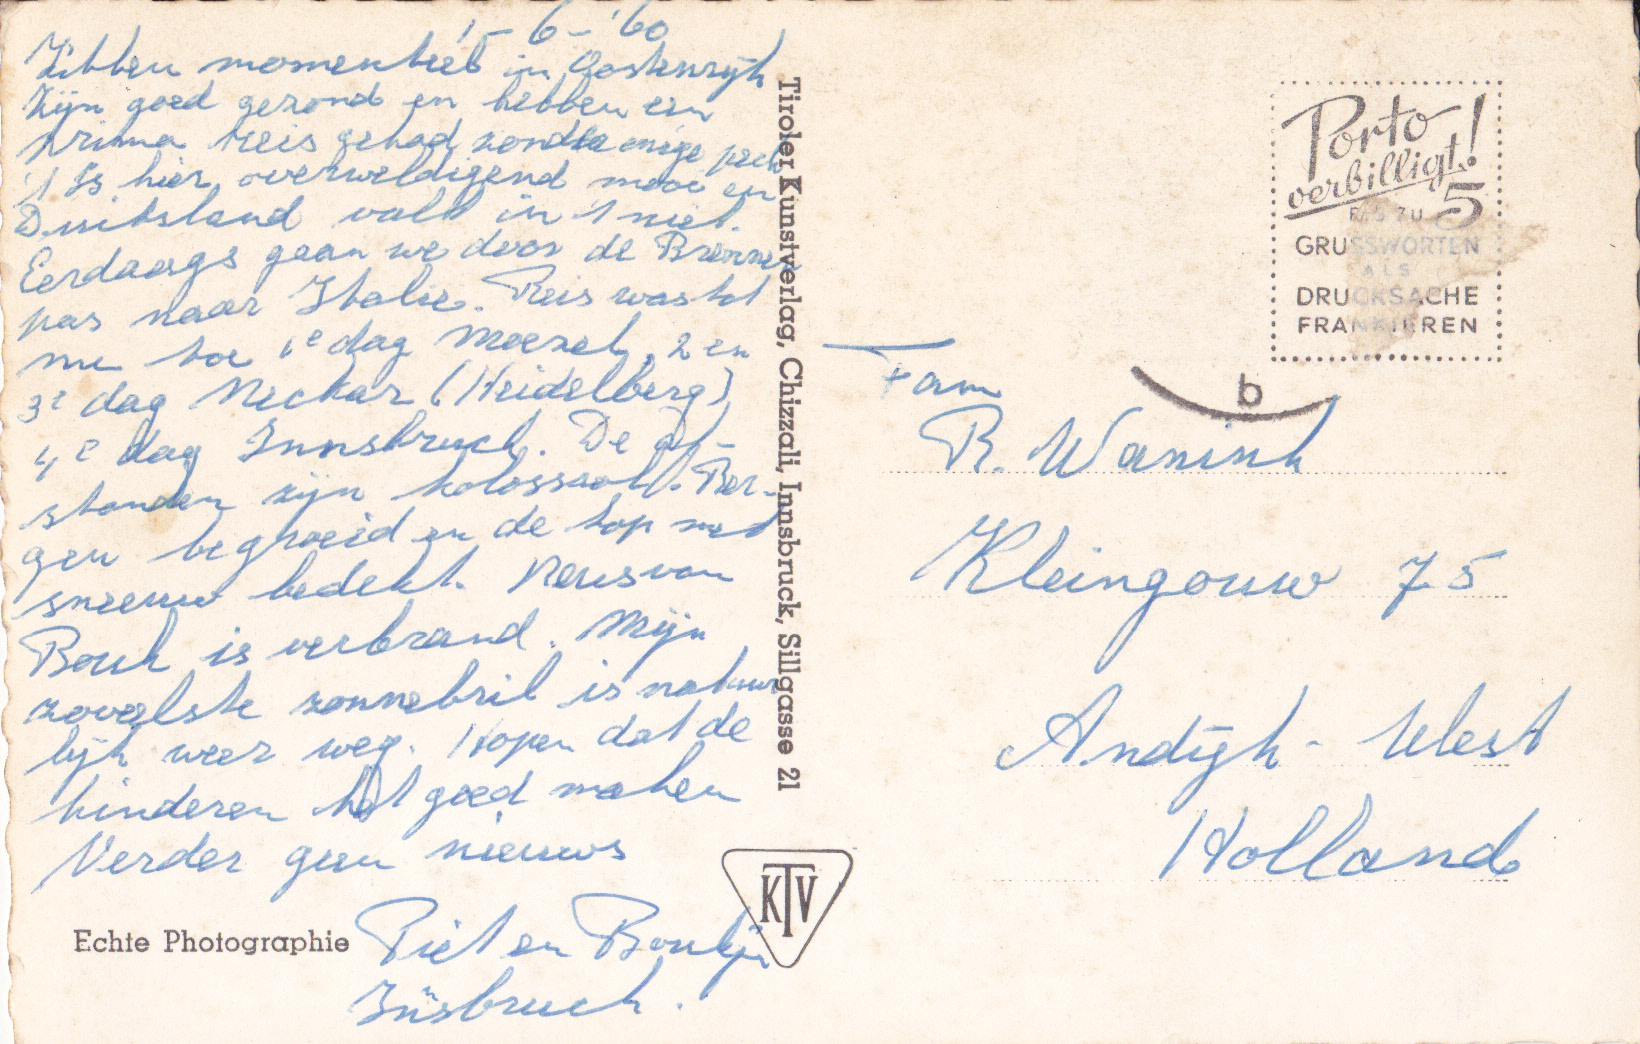 1-6-'60
Zitten momenteel in Oostenrijk
Zijn goed gezond en hebben een
prima reis gehad zonder enige pech
't Is hier overweldigend mooi en
Duitsland valt in 't niet.
Eerdaags gaan we door de Brenner
pas naar Italie. Reis was tot
nu toe 1e dag Moezel, 2 en
3e dag Neckar (Heidelberg)
4e dag Innsbruck. De af-
standen zijn kolossaal. Ber-
gen begroeid en de top met
sneeuw bedekt. Neus van
Bouk is verbrand. Mijn
zoveelste zonnebril is natuur
lijk weer weg. Hopen dat de
kinderen het goed maken
Verder geen nieuws
Piet en Boukje
Insbruck.
Echte Photographie
Tiroler Kunstverlag, Chizzali, Innsbruck, Sillgasse 21
KTV
Porto
verbilligt!
BIS ZU 5
GRUSSWORTEN
ALS
DRUCKSACHE
FRANKIEREN
b
Fam
R. Wanink
Kleingouw 75
Andijk-West
Holland